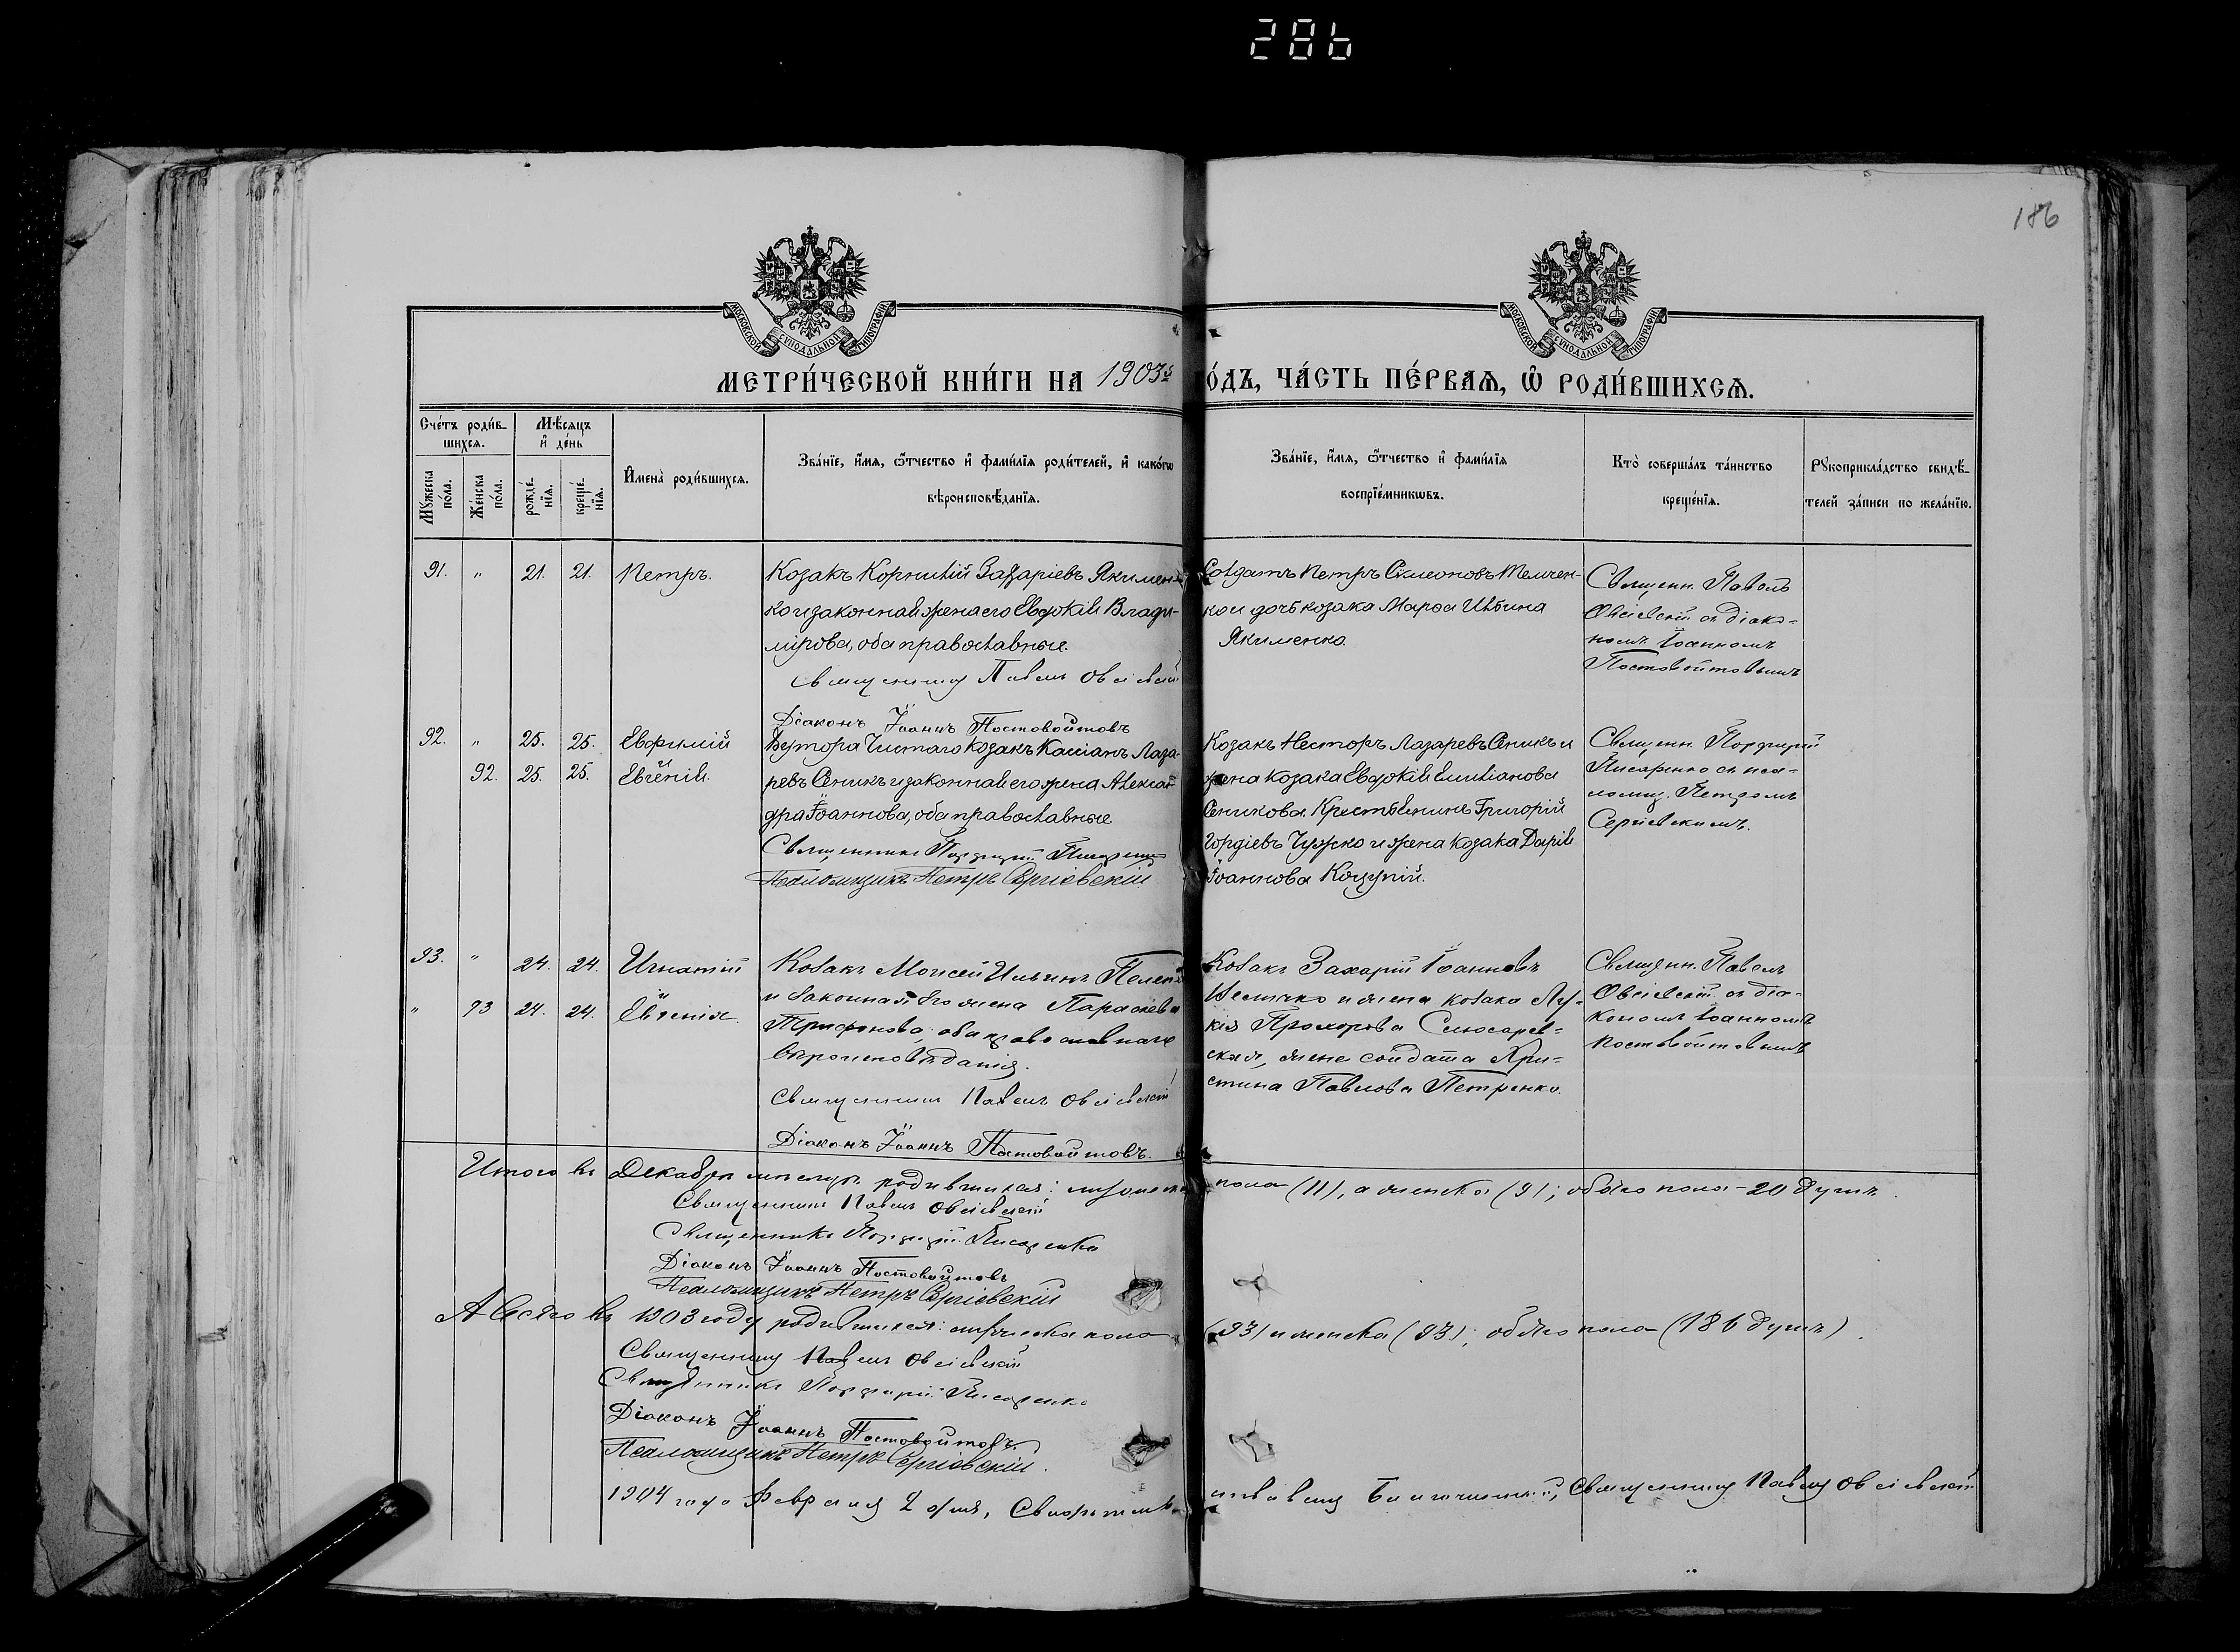 286
186
МОСКОВСКОЙ СѴНОДАЛЬНОЙ ТИПОГРАФІИ
МОСКОВСКОЙ СѴНОДАЛЬНОЙ ТИПОГРАФІИ
МЕТРИ́ЧЕСКОЙ КНИ́ГИ НА 1903й
О́ДЪ, ЧА́СТЬ ПЕ́РВАѦ, Ѡ҆ РОДИ́ВШИХСѦ.
Сче́тъ роди́в-
шихсѧ.
Мѣ́сѧцъ
и҆ де́нь
Мꙋ́жеска
по́ла.
Же́нска
по́ла.
рожде́-
нїѧ.
креще́-
нїѧ.
И҆мена̀ роди́вшихсѧ.
Зва́нїе, и҆́мѧ, ѻ҆́тчество и҆ фами́лїѧ роди́телей, и҆ како́гѡ
вѣроисповѣ́данїѧ.
Зва́нїе, и҆́мѧ, ѻ҆́тчество и҆ фами́лїѧ
воспрїе́мникѡвъ.
Кто̀ соверша́лъ та́инство
креще́нїѧ.
Рꙋкоприкла́дство свидѣ́-
телей за́писи по жела́нїю.
91. " 21. 21. Петръ.
Козакъ Корнилій Захаріевъ Якимен-
ко и законная жена его Евдокія Влади-
мірова, оба православные.
Священникъ Павелъ Овсіевскій
Діаконъ Іоаннъ Постовойтовъ
Солдатъ Петръ Сімеоновъ Темчен-
ко и дочь козака Марѳа Ильина
Якименко.
Священ. Павелъ
Овсіевскій съ діако-
номъ Іоанномъ
Постовойтовымъ
92. " 25. 25. Евфимій
и
92. 25. 25. Евгенія.
Хутора Чистаго козакъ Кассіанъ Лаза-
ревъ Сеникъ и законная его жена Алексан-
дра Іоаннова, оба православные
Священникъ Порфирій Писаренко
Псаломщикъ Петръ Сергіевскій
Козакъ Несторъ Лазаревъ Сеникъ и
жена козака Евдокія Емиліанова
Сеникова. Крестьянинъ Григорій
Гордіевъ Чужко и жена козака Дарія
Іоаннова Коцупій.
Священн. Порфирій
Писаренко съ пса-
ломщ. Петромъ
Сергіевскимъ.
93. " 24. 24. Игнатій
и
" 93 24. 24. Евгенія.
Козакъ Моисей Ильинъ
и законная его жена Параскева
Трифонова, оба православнаго
вѣроисповѣданія.
Священникъ Павелъ Овсіевскій
Діаконъ Іоаннъ Постовойтовъ.
Козакъ Захарій Іоанновъ
и жена козака Лу-
кія Прохорова Слюсарев-
ская, жена солдата Хри-
стина Павлова Петренко.
Священн. Павелъ
Овсіевскій съ діа-
кономъ Іоанномъ
Постовойтовымъ
Итого въ Декабрѣ мѣсяцѣ родившихся: мужеска пола (11), а женска (9); обоего пола - 20 душъ.
Священникъ Павелъ Овсіевскій
Священникъ Порфирій Писаренко
Діаконъ Іоаннъ Постовойтовъ
Псаломщикъ Петръ Сергіевскій
А всего въ 1903 году родившихся: мужеска пола (93) и женска (93); обоего пола (186 душъ).
Священникъ Павелъ Овсіевскій
Священникъ Порфирій Писаренко
Діаконъ Іоаннъ Постовойтовъ.
Псаломщикъ Петръ Сергіевскій.
1904 года Февраля 2 дня, Благочинный, Священникъ Павелъ Овсіевскій